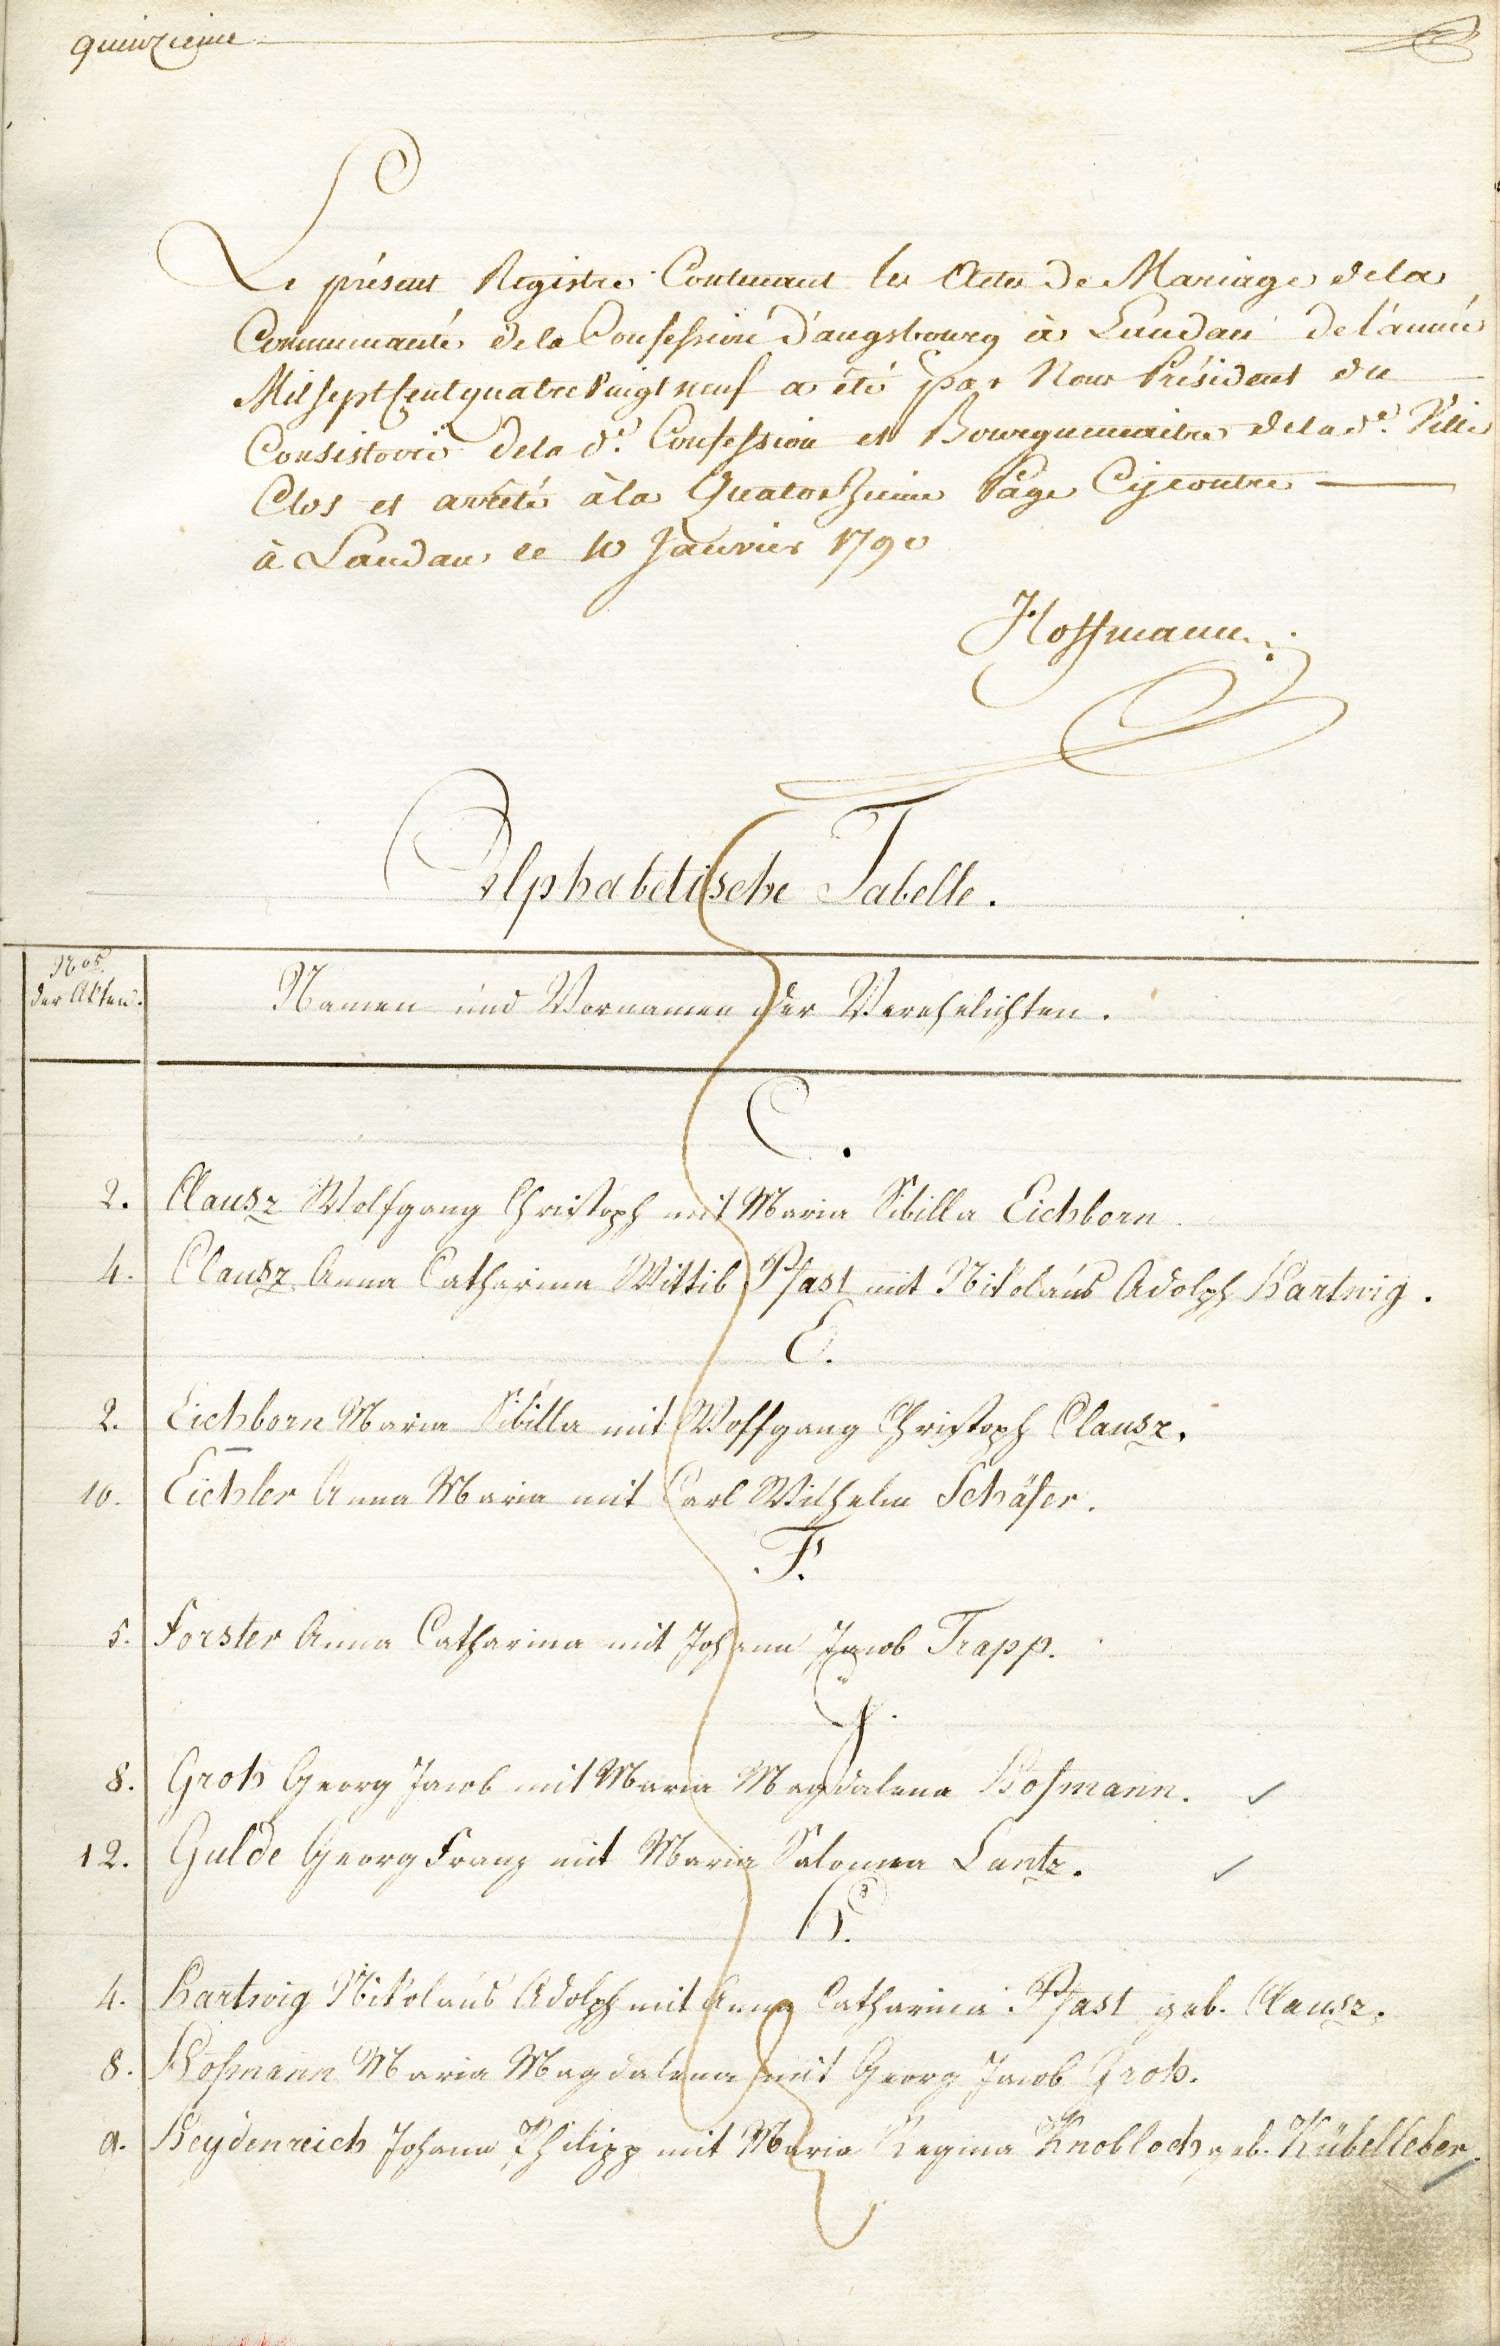 quinzieme
Le présent Registre Contenant les Actes de Mariage dela
Communauté dela Confession d'augsbourg à Landau de l'année
Mil sept Cent quatre Vingt neuf a été par Nous Président du
Consistoire dela d.e Confession et Bourguemaitre dela d.e Ville
Clos et arrêté àla Quatorzieme Page Cycontre
à Landau le 10 Janvier 1790
Hoffmann
Alphabetische Tabelle.
N.os
der Akten.
Namen und Vornamen der Verehelichten.
C.
2. Clausz Wolfgang Christoph mit Maria Sibilla Eichborn
4. Clausz Anna Catharina Wittib Pfast mit Nikolaus Adolph Hartwig.
E.
2. Eichborn Maria Sibilla mit Wolfgang Christoph Clausz.
10. Eichler Anna Maria mit Carl Wilhelm Schäfer.
F.
5. Forster Anna Catharina mit Johann Jacob Trapp.
G.
8. Groh Georg Jacob mit Maria Magdalena Hofmann.
12. Gulde Georg Franz mit Maria Salomea Lantz.
H.
4. Hartwig Nikolaus Adolph mit Anna Catharina Pfast geb. Clausz.
8. Hofmann Maria Magdalena mit Georg Jacob Groh.
9. Heydenreich Johann Philipp mit Maria Regina Knobloch geb. Kübelleber.